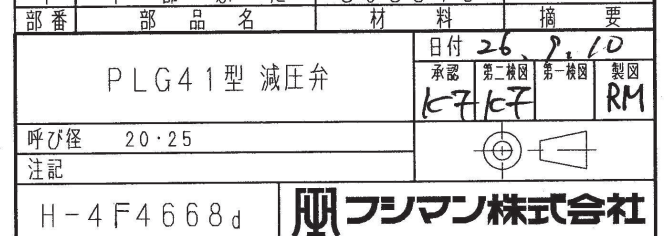 部番 部品名 材料 摘要
PLG41型 減圧弁
日付 26.9.10
承認 第二検図 第一検図 製図
KF KF RM
呼び径 20・25
注記
H-4F4668d
フシマン株式会社